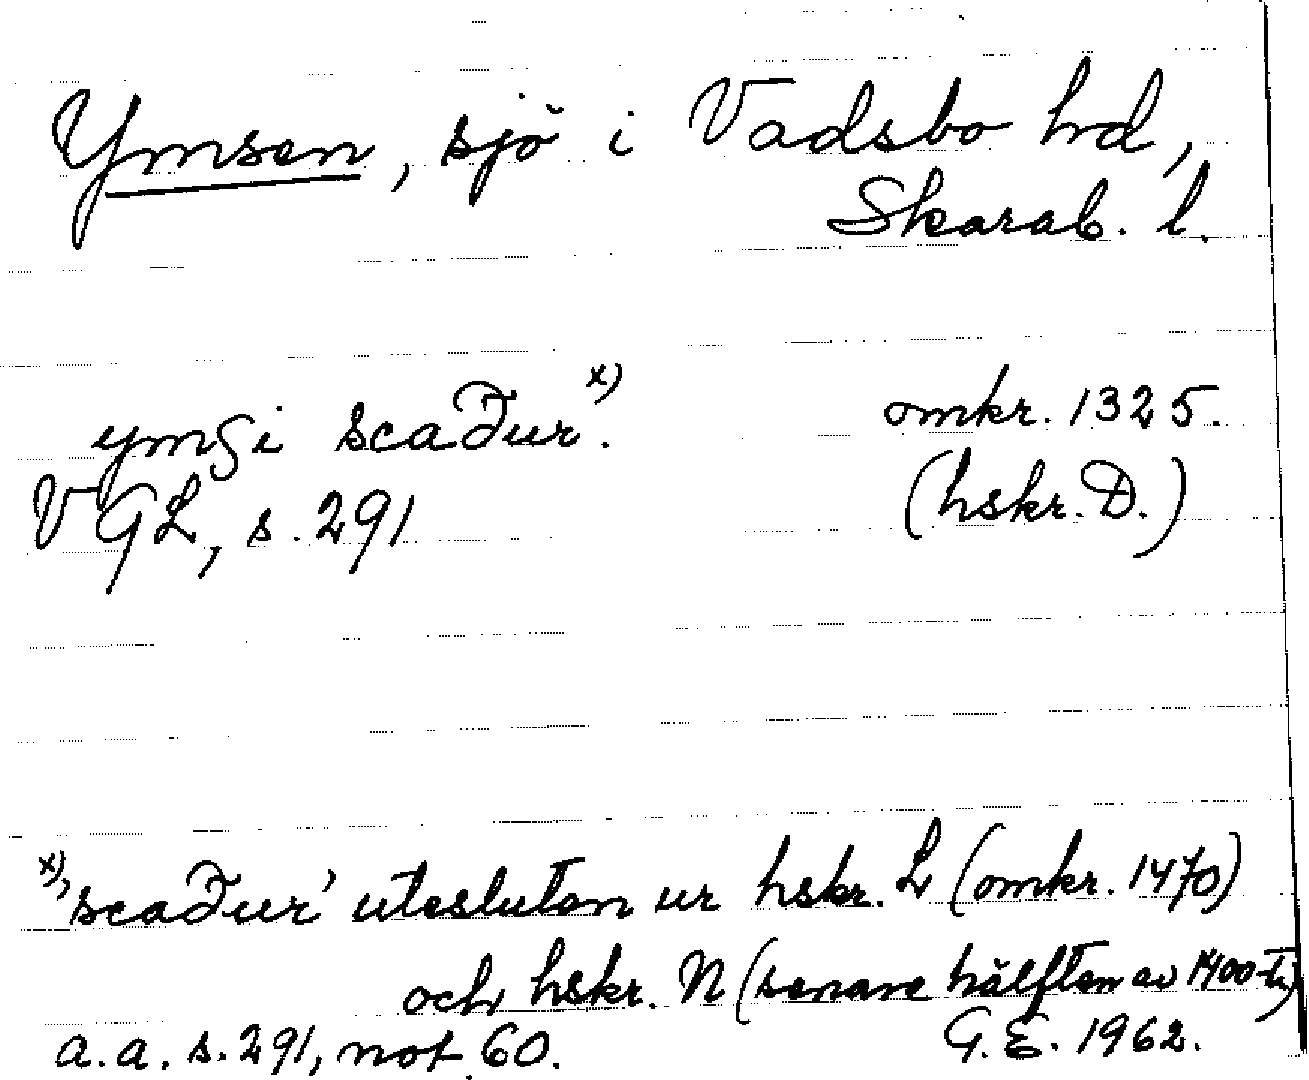 Ymsen, sjö i Vadsbo hd,
Skarab. l.
ymsi scaður.x)
omkr. 1325.
VGL, s. 291
(hskr. D.)
x) 'scaður' utesluten ur hskr. L (omkr. 1470)
och hskr. N (senare hälften av 1400-t.)
a.a. s. 291, not 60.
G.E. 1962.